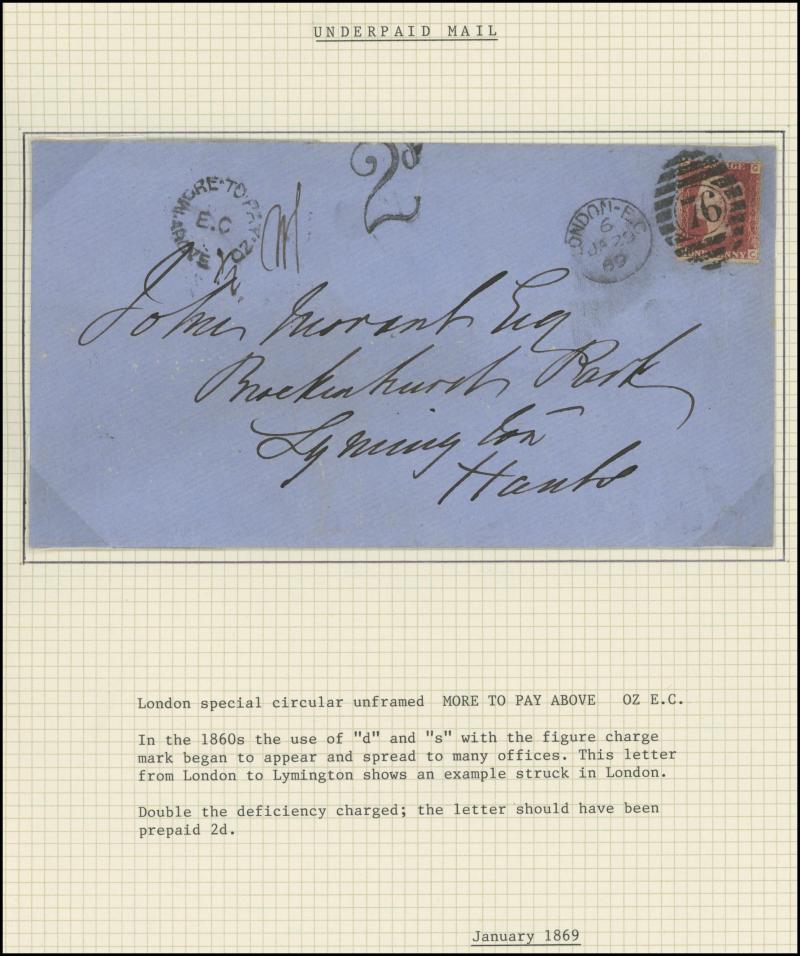 UNDERPAID MAIL
2d
MORE·TO·PAY
E.C
ABOVE OZ.
½
LONDON-E.C
6
JA 2
69
76
G
ONE PENNY
G
John Morant Esq
Brockenhurst Park
Lymington
Hants
London special circular unframed MORE TO PAY ABOVE OZ E.C.
In the 1860s the use of "d" and "s" with the figure charge
mark began to appear and spread to many offices. This letter
from London to Lymington shows an example struck in London.
Double the deficiency charged; the letter should have been
prepaid 2d.
January 1869